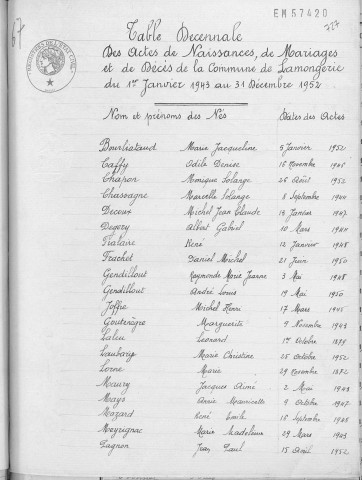 EM 57420
Table Decennale
Des Actes de Naissances, de Mariages
et de Décès de la Commune de Lamongerie
du 1er Janvier 1943 au 31 Décembre 1952
Nom et prénoms des Nés Dates des Actes
Marie Jacqueline 5 Janvier 1952
Caffy Odile Denise 15 Novembre 1945
Chapon Monique Solange 26 Août 1952
Chassagne Marcelle Solange 8 Septembre 1944
Decoux Michel Jean Claude 14 Janvier 1947
Degery Albert Gabriel 10 Mars 1944
Fialaire René 12 Janvier 1948
Frachet Daniel Michel 21 Juin 1950
Gendillout Raymonde Marie Jeanne 3 Mai 1948
Gendillout André Louis 19 Mai 1950
Joffre Michel Henri 17 Mars 1945
Gouteregne Marguerite 9 Novembre 1943
Laleu Léonard 1er Octobre 1879
Laubary Marie Christine 25 Octobre 1952
Lorne Marie 29 Novembre 1872
Maury Jacques Aimé 2 Mai 1948
Mays Annie Mauricette 9 Octobre 1947
Mazard René Emile 15 Septembre 1948
Meyrignac Marie Madeleine 29 Mars 1943
Pagnon Jean Paul 15 Avril 1952